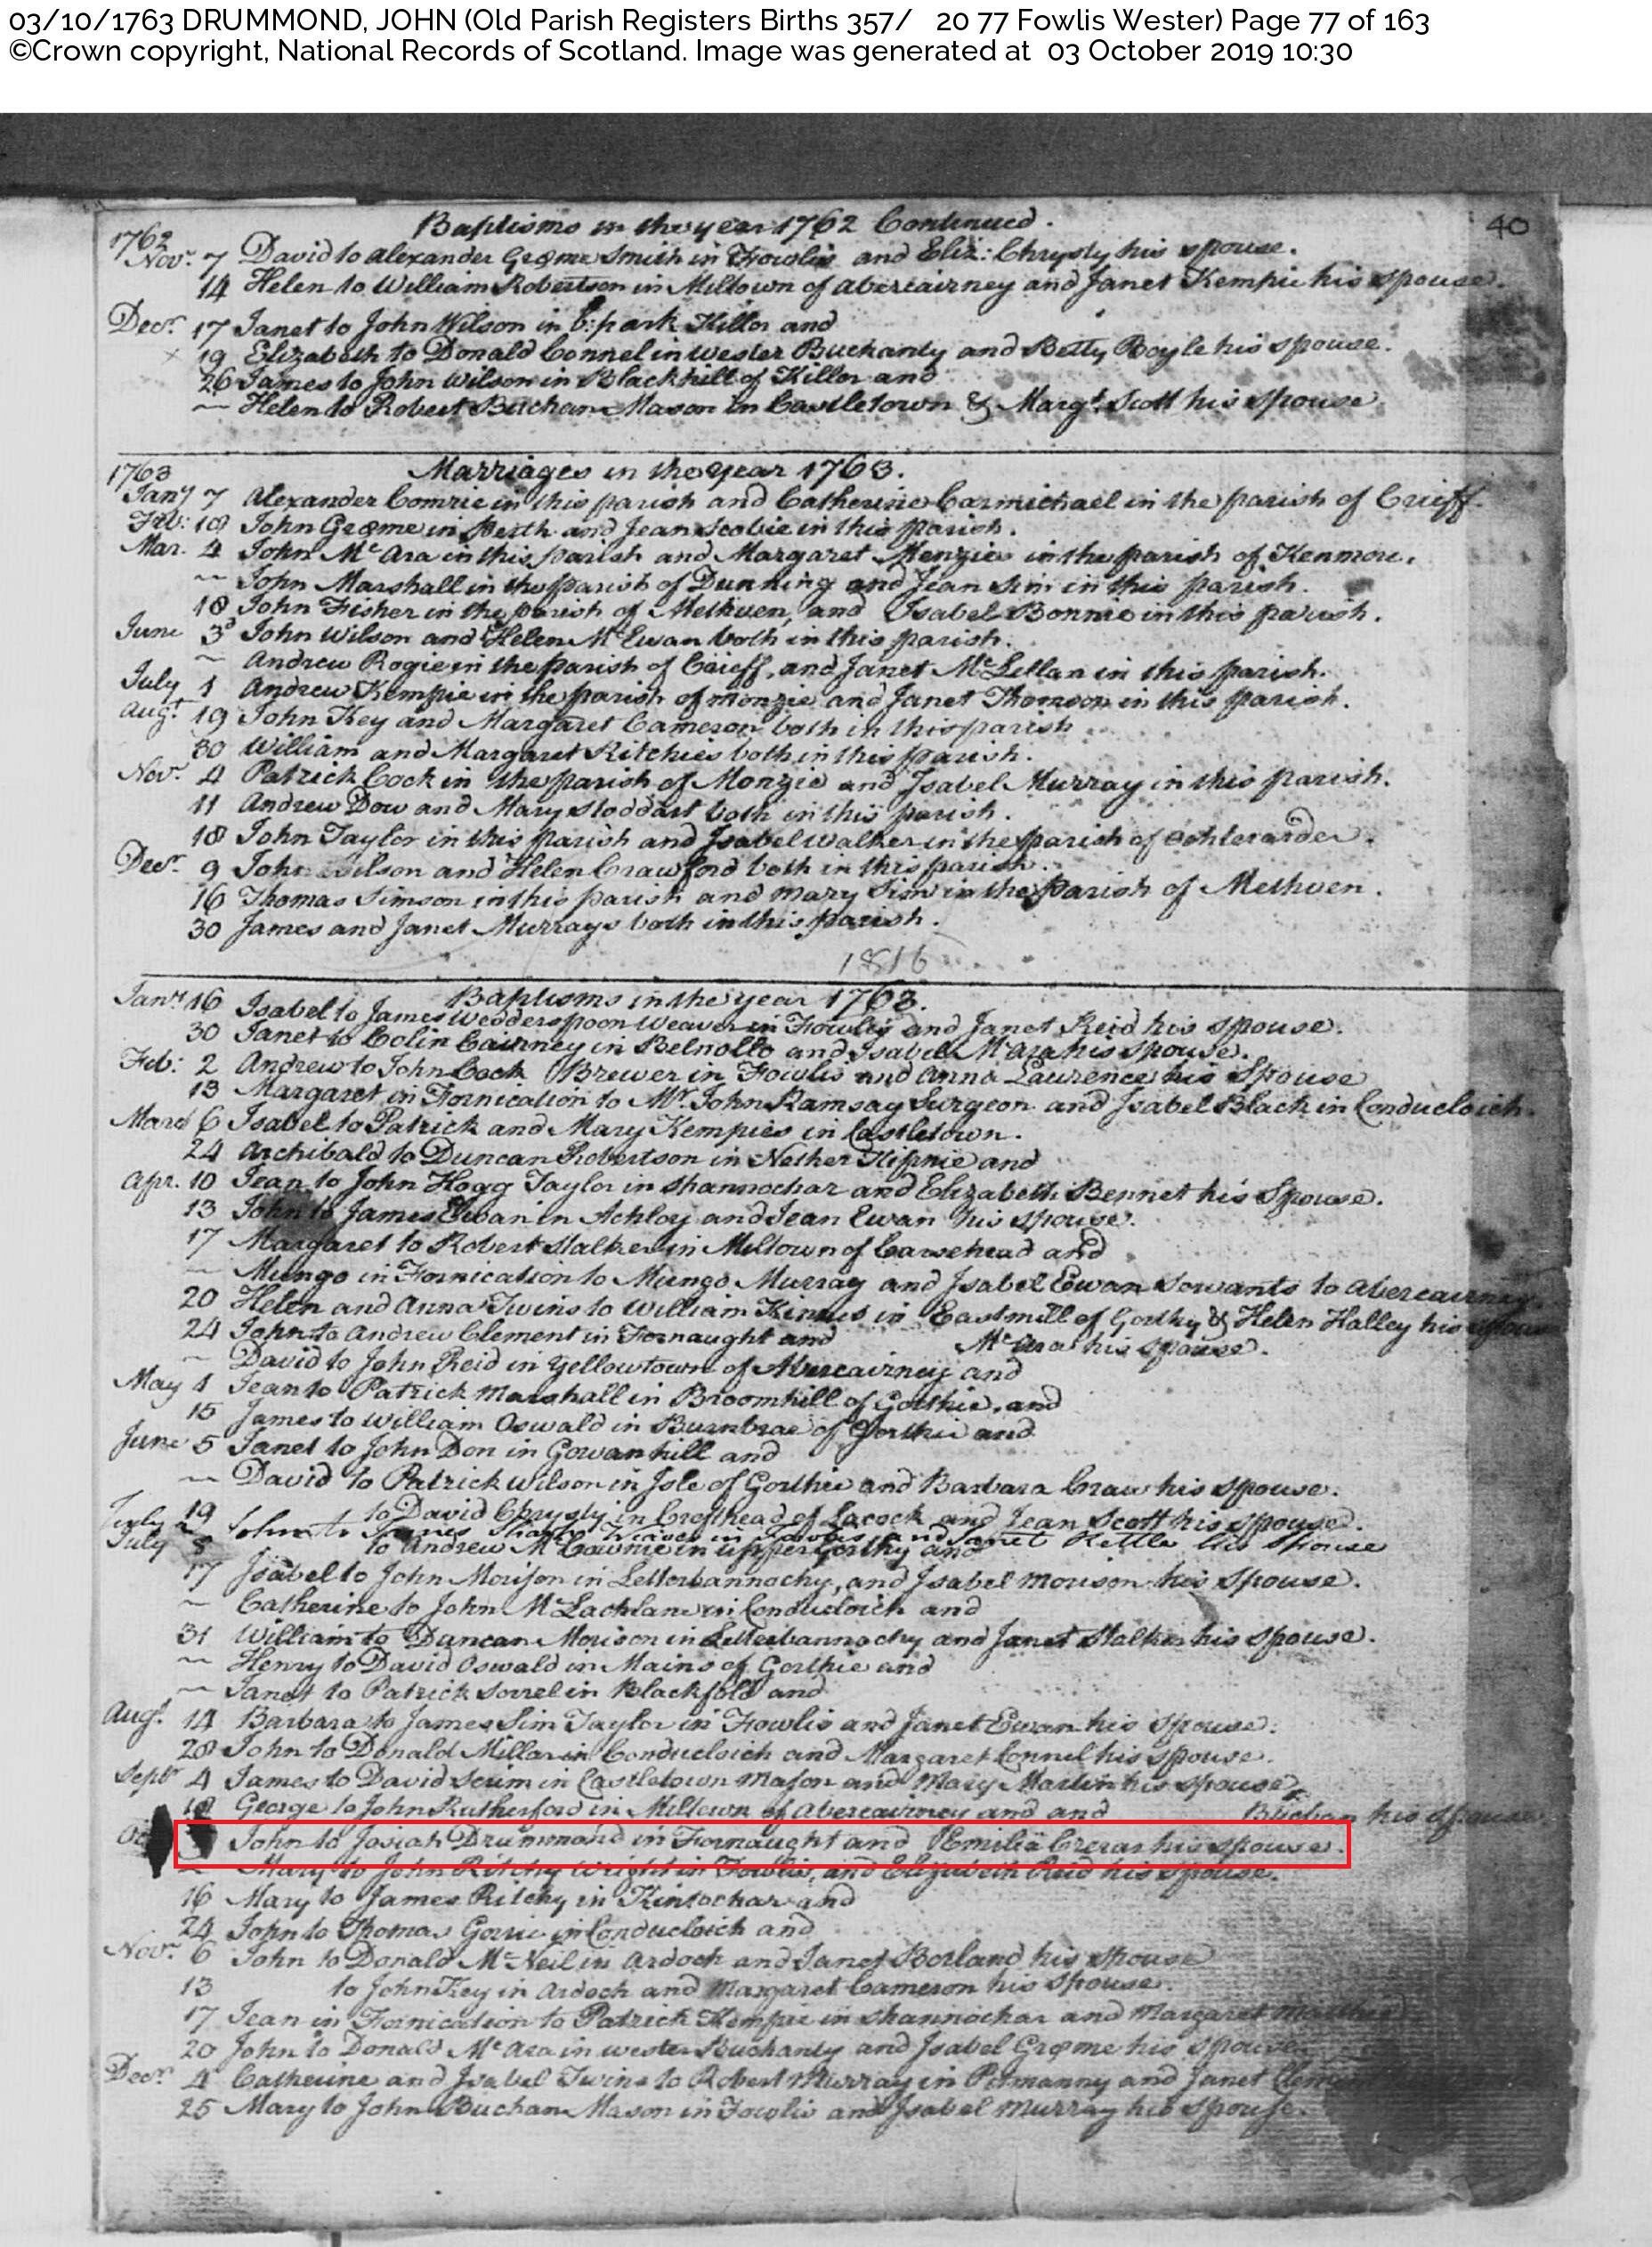 03/10/1763 DRUMMOND, JOHN (Old Parish Registers Births 357/ 20 77 Fowlis Wester) Page 77 of 163
©Crown copyright, National Records of Scotland. Image was generated at 03 October 2019 10:30
40
Baptisms in the year 1762 Continued.
1762
Novr. 7 David to Alexander Græme Smith in Fowlis and Eliz: Chrysty his spouse.
14 Helen to William Robertson in Miltown of Abercairney and Janet Kempie his spouse.
Decr. 17 Janet to John Wilson in park Killor and
19 Elizabeth to Donald Connel in Wester Buchanty and Betty Boyle his spouse.
26 James to John Wilson in Blackhill of Killor and
~ Helen to Robert Buchan Mason in Castletown & Margt. Scott his spouse
1763 Marriages in the year 1763.
Jany 7 Alexander Comrie in this parish and Catherine Carmichael in the parish of Crieff.
Feb: 18 John Græme in Perth and Jean Scobie in this parish.
Mar. 4 John Mc Ara in this parish and Margaret Menzies in the parish of Kenmore.
~ John Marshall in the parish of Dunning and Jean Sim in this parish.
18 John Fisher in the parish of Methven, and Isabel Bonnie in this parish.
June 3d John Wilson and Helen McEwan both in this parish.
~ Andrew Rogie in the parish of Crieff, and Janet McLellan in this parish.
July 1 Andrew Kempie in the parish of Monzie and Janet Thomson in this parish.
Augt. 19 John Key and Margaret Cameron both in this parish
30 William and Margaret Ritchies both in this parish.
Novr. 4 Patrick Cock in the parish of Monzie and Isabel Murray in this parish.
11 Andrew Dow and Mary Stoddart both in this parish.
18 John Taylor in this parish and Isabel Walker in the parish of Ochterarder.
Decr. 9 John Wilson and Helen Crawford both in this parish.
16 Thomas Simson in this parish and Mary Sim in the parish of Methven.
30 James and Janet Murrays both in this parish.
1816
Baptisms in the year 1763.
Janry 16 Isabel to James Wedderspoon Weaver in Fowlis and Janet Reid his spouse.
30 Janet to Colin Cairney in Belnollo and Isabel McAra his spouse.
Feb: 2 Andrew to John Cock Brewer in Fowlis and Anna Laurence his Spouse
13 Margaret in Fornication to Mr. John Ramsay Surgeon and Isabel Black in Conducloich.
March 6 Isabel to Patrick and Mary Kempies in Castletown.
24 Archibald to Duncan Robertson in Nether and
Apr. 10 Jean to John Hogg Taylor in Shannochar and Elizabeth Bennet his Spouse.
13 John to James Ewan in Achloy and Jean Ewan his spouse.
17 Margaret to Robert Stalker in Miltown of Carsehead and
~ Mungo in Fornication to Mungo Murray and Isabel Ewan Servants to Abercairney.
20 Helen and Anna Twins to William in Eastmill of Gorthy & Helen Halley his spouse
24 John to Andrew Clement in Fornaught and McAra his spouse.
~ David to John Reid in Yellowtown of Abercairney and
May 1 Jean to Patrick Marshall in Broomhill of Gorthie, and
15 James to William Oswald in Burnbrae of Gorthie and
June 5 Janet to John Don in Gowanhill and
~ David to Patrick Wilson in Isle of Gorthie and Barbara Craw his spouse.
19 to David Chrysty in Crofthead of Lacock and Jean Scott his spouse.
July 2 John to James Weaver in Fowlis and Janet Kettle his spouse
July 3 to Andrew Mc in upper Gorthy and
17 Isabel to John Morison in Letterbannochy, and Isabel Morison his Spouse.
~ Catherine to John McLachlan in Conducloich and
31 William to Duncan Morison in Letterbannochy and Janet Stalker his spouse.
~ Henry to David Oswald in Mains of Gorthie and
~ Janet to Patrick Sorrel in Blackfold and
Augt. 14 Barbara to James Sim Taylor in Fowlis and Janet Ewan his spouse:
28 John to Donald Millar in Conducloich and Margaret Connel his spouse.
Sepbr 4 James to David Scrim in Castletown Mason and Mary Martin his spouse,
18 George to John Rutherford in Miltown of Abercairney and and Buchan his spouse
Oct 3 John to Josiah Drummond in Fornaught and Emilia Crerar his spouse.
~ Mary to John Ritchy Wright in Fowlis, and Elizabeth Reid his spouse.
16 Mary to James Ritchy in Kintochar and
24 John to Thomas Gorrie in Conducloich and
Novr. 6 John to Donald Mc Neil in Ardoch and Janet Borland his spouse
13 to John Key in Ardoch and Margaret Cameron his spouse.
17 Jean in Fornication to Patrick Kempie in Shannochar and Margaret
20 John to Donald Mc Ara in Wester Buchanty and Isabel Græme his spouse
Decr. 4 Catherine and Isabel Twins to Robert Murray in Pitmanny and Janet
25 Mary to John Buchan Mason in Fowlis and Isabel Murray his spouse.